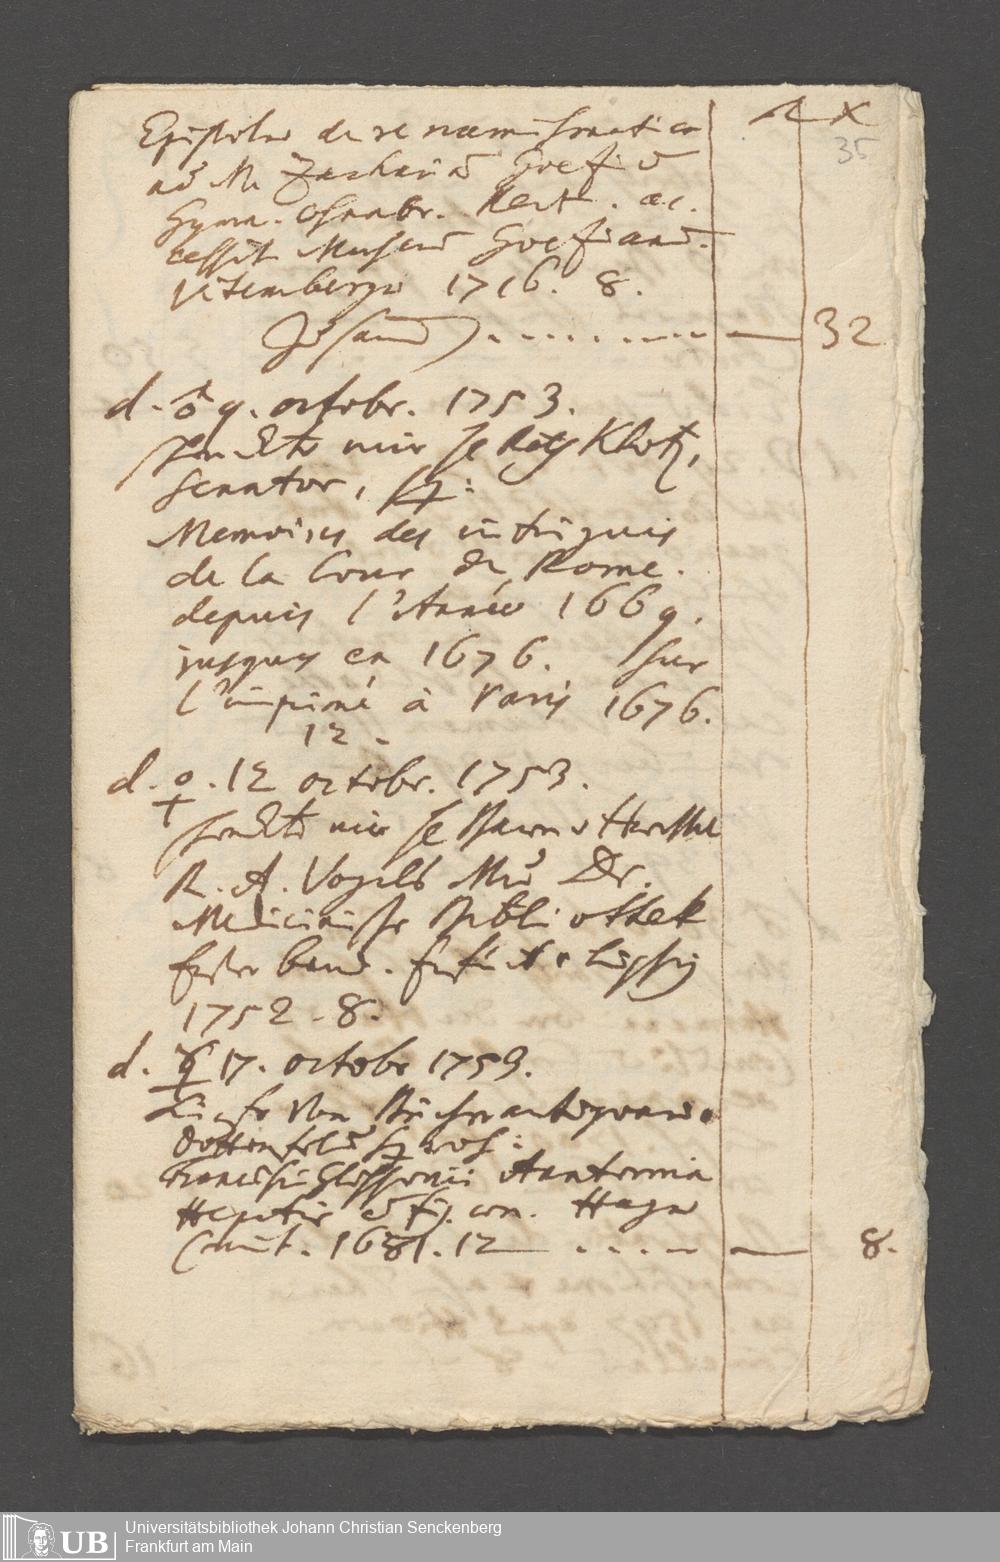 R X
35
Epistolae de re numismatica
ad M. Zachariā Goeziū
Gymn. Osnabr. Rect. ac-
cessit Museū Goezianū.
Vitembergae 1716. 8.
. . . . . . . — 32
d. ♂ 9. octobr. 1753.
mir He Klotz,
Senator,
Memoires des intrigues
de la Cour de Rome.
depuis l'Année 1669.
jusques en 1676. sur
l'imprimé à Paris 1676.
12.
d. ♀. 12 octobr. 1753.
mir He Baron v
R. A. Vogels Med Dr.
Medicinische Bibliothek
Erster band. Erfurt u. Leipzig
1752. 8.
d. ☿ 17. octobr 1753.
von
Francisci Glissonii Anatomia
Hepatis Hagae
Comit. 1681. 12 — . . . . — 8.
UB
Universitätsbibliothek Johann Christian Senckenberg
Frankfurt am Main